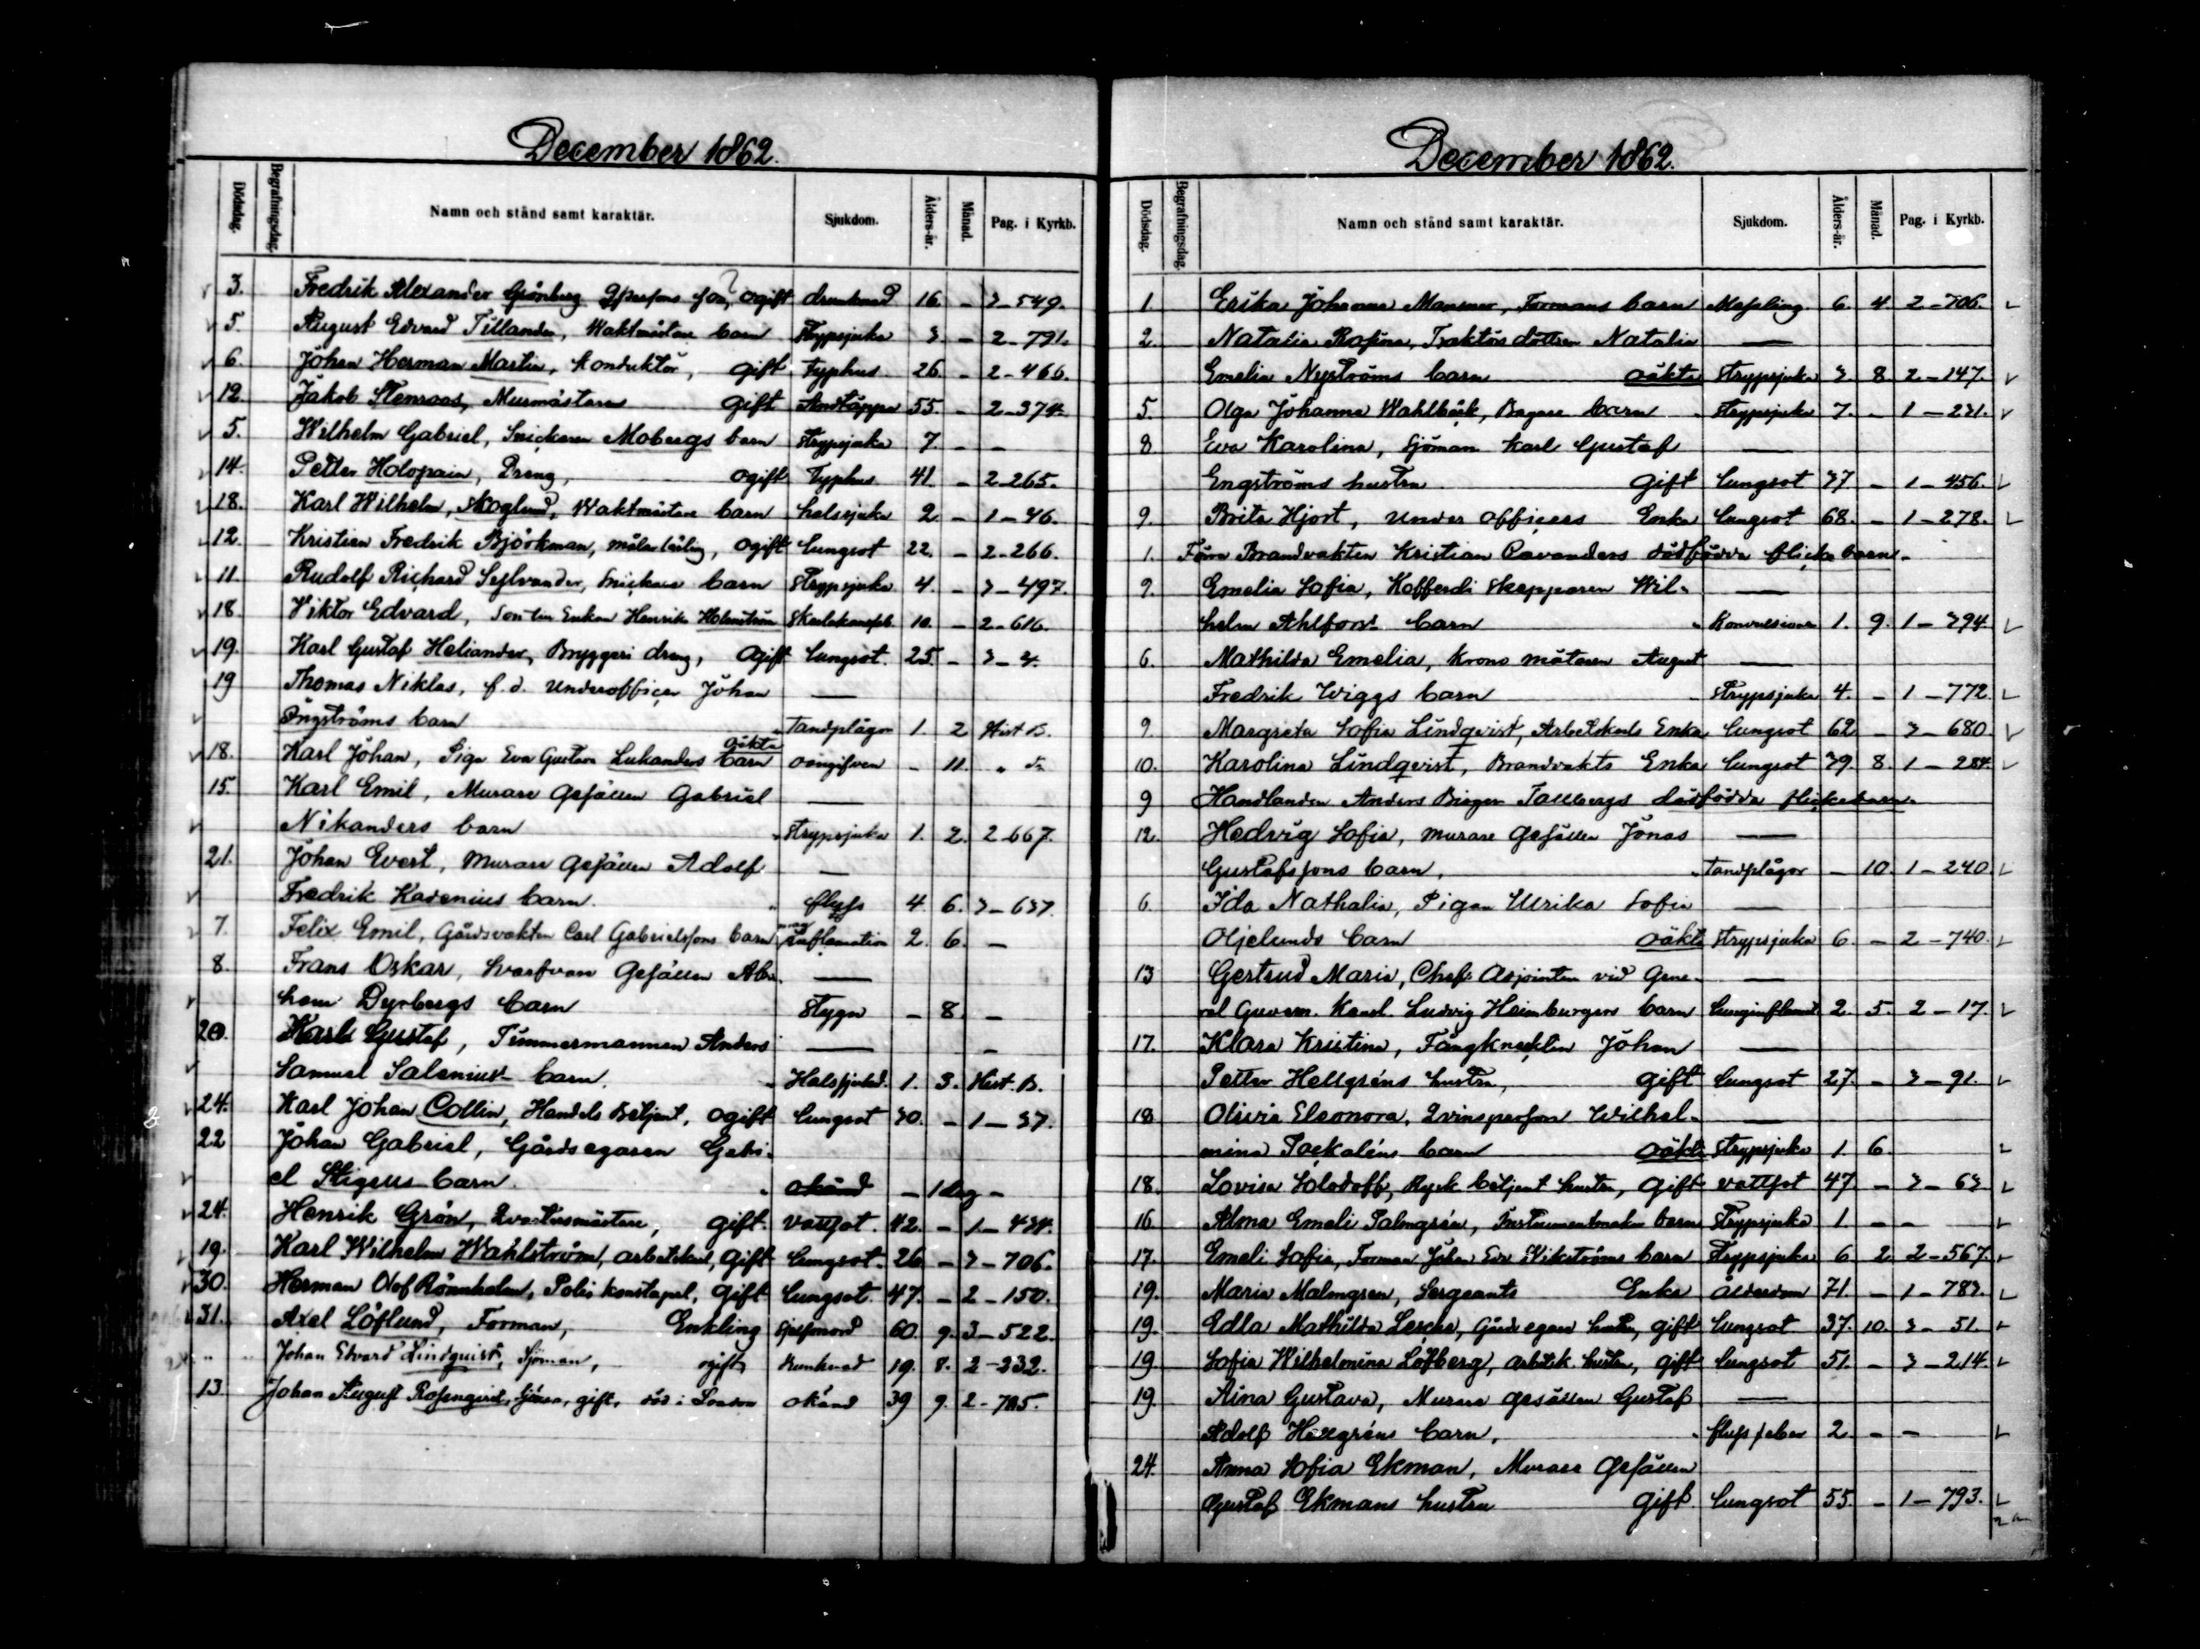 December 1862.
Dödsdag. Begrafningsdag. Namn och stånd samt karaktär. Sjukdom. Ålders-år. Månad. Pag. i Kyrkb.
3. Fredrik Alexander Grönberg ogift drunknad 16. - 3 - 549.
5. August Edvard Tillander, Waktmästare barn Strypsjuka 3. - 2 - 791.
6. Johan Herman Martin, Konduktör, gift Typhus 26. - 2 - 466.
12. Jakob Stenroos, Murmästare gift Andtäppa 55. - 2 - 374.
5. Wilhelm Gabriel, Snickaren Mobergs barn Strypsjuka 7. - -
14. Petter Holopain, Dreng, ogift Typhus 41. - 2 - 265.
18. Karl Wilhelm, Skoglund, Waktmästare barn halssjuka 2. - 1 - 46.
12. Kristian Fredrik Björkman, målar lärling, ogift lungsot 22. - 2 - 266.
11. Rudolf Richard Sylvander, Snickare barn Strypsjuka 4. - 3 - 497.
18. Viktor Edvard, Son till Enkan Henrika Holmström 10. - 2 - 616.
19. Karl Gustaf Heliander, Bryggeri dreng, ogift lungsot. 25. - 3 - 4.
19 Thomas Niklas, f. d. Underofficer Johan —
Ångströms barn Tandplågor 1. 2 Hist. B.
18. Karl Johan, Piga Eva Gustava Lukanders oäkta barn oangifven - 11. " do
15. Karl Emil, Murare Gesällen Gabriel —
Nikanders barn Strypsjuka 1. 2. 2 - 667.
21. Johan Evert, Murare Gesällen Adolf —
Fredrik Kadenius barn. " flyss 4. 6. 3 - 637.
7. Felix Emil, Gårdsvakten Carl Gabrielssons barn inflamation 2. 6. -
8. Frans Oskar, Svarfvare Gesällen Abra- —
ham Dyrbergs barn Stygn - 8. -
20. Karl Gustaf, Timmermannen Anders — -
Samuel Salenius barn. " Halssjukd. 1. 3. Hist. B.
24. Karl Johan Collin, Handels Betjent, ogift lungsot 30. - 1 - 37.
22 Johan Gabriel, Gårdsegaren Gabri-
el Stigells barn. " okänd - 1 dag -
24. Henrik Grön, Qvartersmästare, gift. vattsot. 42. - 1 - 434.
19. Karl Wilhelm Wahlström, arbetskarl, gift lungsot. 26 - 3 - 706.
30. Herman Olof Rönnholm, Polis konstapel, gift lungsot. 47. - 2 - 150.
31. Axel Löflund, Forman, Enkling sjelfmord 60. 9. 3 - 522.
" " Johan Edvard Lindquist, Sjöman, ogift, drunknad 19. 8. 2 - 232.
13. Johan August Rosenqvist, Sjöman, gift, död i London okänd 39 9. 2 - 785.
December 1862.
Dödsdag. Begrafningsdag. Namn och stånd samt karaktär. Sjukdom. Ålders-år. Månad. Pag. i Kyrkb.
1. Erika Johanna Mansner, Formans barn Messling 6. 4 2 - 706.
2. Natalia Rosina, Traktörs dottren Natalia —
Emelia Nyströms barn oäkta Strypsjuka 3. 8 2 - 147.
5. Olga Johanna Wahlbäck, Bagare barn Strypsjuka 7. - 1 - 231.
8 Eva Karolina, Sjöman Karl Gustaf —
Engströms hustru gift lungsot 37 - 1 - 456.
9. Brita Hjort, Under officers Enka lungsot 68. - 1 - 278.
1. Förra Brandvakten Kristian Cavanders dödfödda flicka barn.
9. Emelia Sofia, Kofferdi Skepparen Wil- —
helm Ahlfors barn " Konvulsioner 1. 9. 1 - 394.
6. Mathilda Emelia, Krono mätaren August —
Fredrik Wiggs barn Strypsjuka 4. - 1 - 772.
9. Margreta Sofia Lindqvist, Arbetskarls Enka lungsot 62 - 3 - 680.
10. Karolina Lindqvist, Brandvakts Enka lungsot 39. 8. 1 - 284.
9 Handlanden Anders Birger Tallbergs dödfödda flickebarn.
12. Hedvig Sofia, murare Gesällen Jonas —
Gustafssons barn, " Tandplågor - 10. 1 - 240
6. Ida Nathalia, Pigan Ulrika Sofia —
Oljelunds barn oäkta Strypsjuka 6. - 2 - 740.
13 Gertrud Maria, Chefs Adjointen vid Gene- —
ral Guvern. Kansl. Ludvig Heimburgers barn Lunginflamat 2. 5. 2 - 17.
17. Klara Kristina, Fångknekten Johan —
Petter Hellgréns hustru, gift lungsot 27. - 3 - 91.
18 Olivia Eleonora, Qvinsperson Wilhel- —
mina barn oäkta Strypsjuka 1. 6.
18. Lovisa Solodoff, Rysk betjent hustru, gift vattsot 47 - 3 - 63
16 Alma Emeli Palmgrén, Instrumentmakar barn Strypsjuka 1. - -
17. Emeli Sofia, Forman Johan Edv Wikströms barn Strypsjuka 6 2. 2 - 567.
19. Maria Malmgren, Sergeants Enka ålderdom 71. - 1 - 783.
19. Edla Mathilda , Gårdsegare hustru, gift lungsot 37. 10. 3 - 51.
19 Sofia Wilhelmina Löfberg, arbetsk. hustru, gift lungsot 51. - 3 - 214
19. Aina Gustava, Murare gesällen Gustaf —
Adolf Hellgréns barn, " flyss feber 2. - -
24. Anna Sofia Ekman, Murare Gesällen
Gustaf Ekmans hustru gift lungsot 55. - 1 - 793.